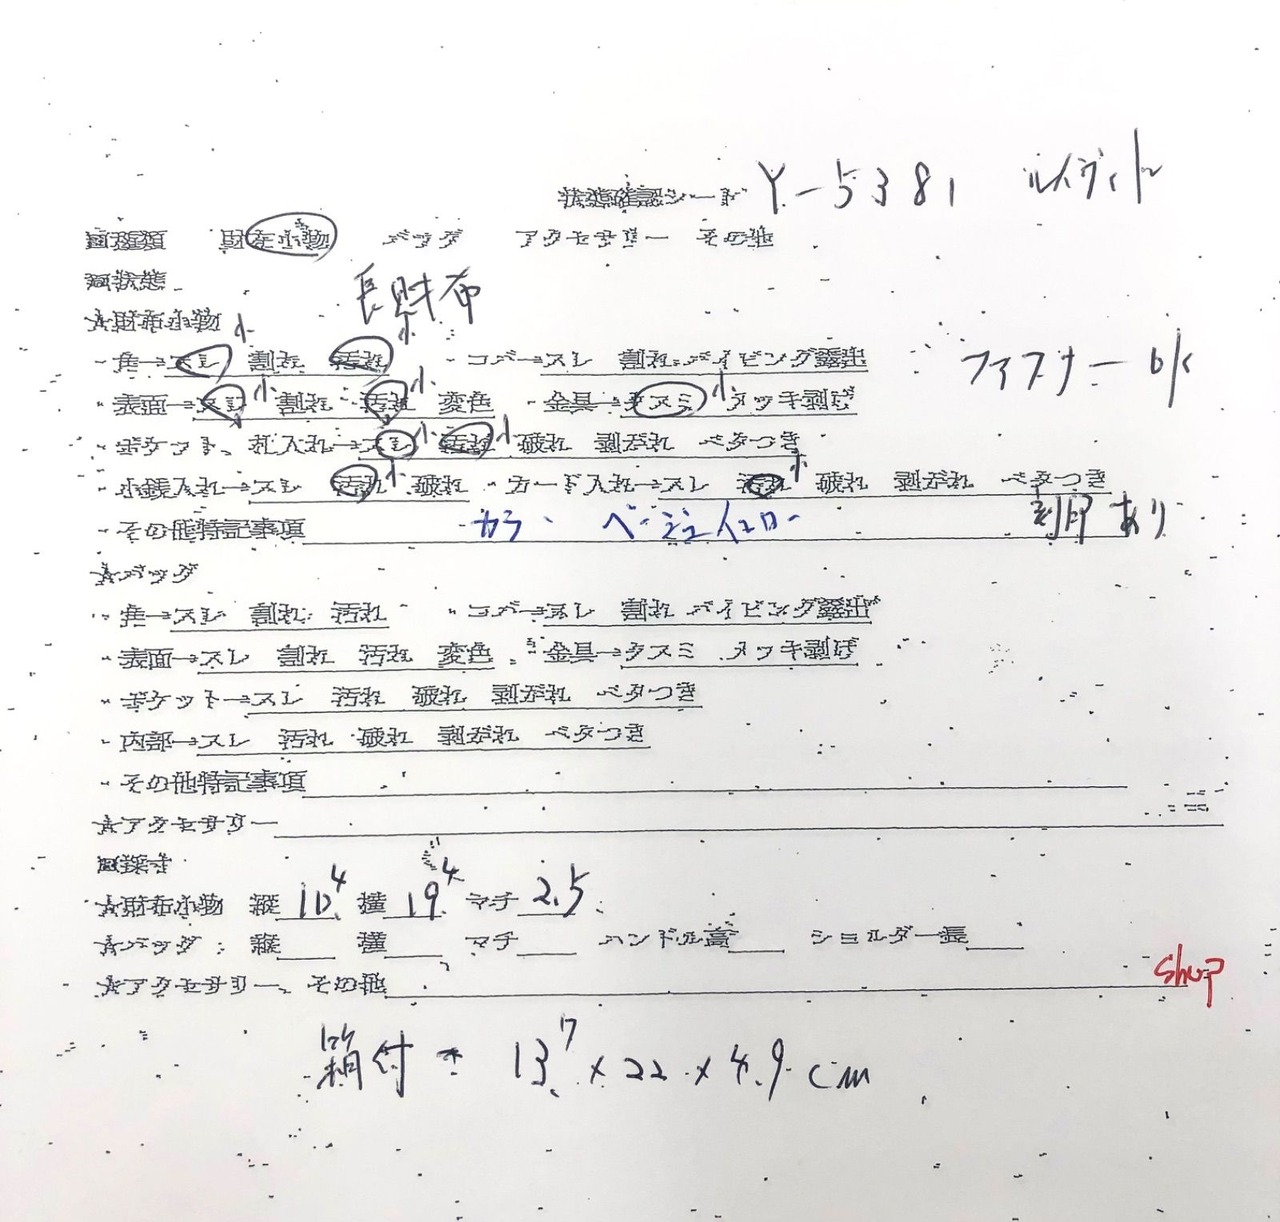 状態確認シート Y-5381 ルイヴィトン
□種類 財布小物 バッグ アクセサリー その他
□状態
長財布
★財布小物
・角→スレ小 割れ 汚れ小 ・コバ→スレ 割れ パイピング露出 ファスナーOK
・表面→スレ小 割れ 汚れ小 変色 ・金具→クスミ小 メッキ剥げ
・ポケット、札入れ→スレ小 汚れ小 破れ 剥がれ ベタつき
・小銭入れ→スレ 汚れ小 破れ ・カード入れ→スレ 汚れ小 破れ 剥がれ ベタつき
・その他特記事項 カラー ベージュイエロー 刻印あり
★バッグ
・角→スレ 割れ 汚れ ・コバ→スレ 割れ パイピング露出
・表面→スレ 割れ 汚れ 変色 ・金具→クスミ メッキ剥げ
・ポケット→スレ 汚れ 破れ 剥がれ ベタつき
・内部→スレ 汚れ 破れ 剥がれ ベタつき
・その他特記事項
★アクセサリー
□採寸
★財布小物 縦 10.4 横 19.4 マチ 2.5
★バッグ 縦 横 マチ ハンドル高 ショルダー長
★アクセサリー、その他
shop
箱付 13.7×22×4.9cm